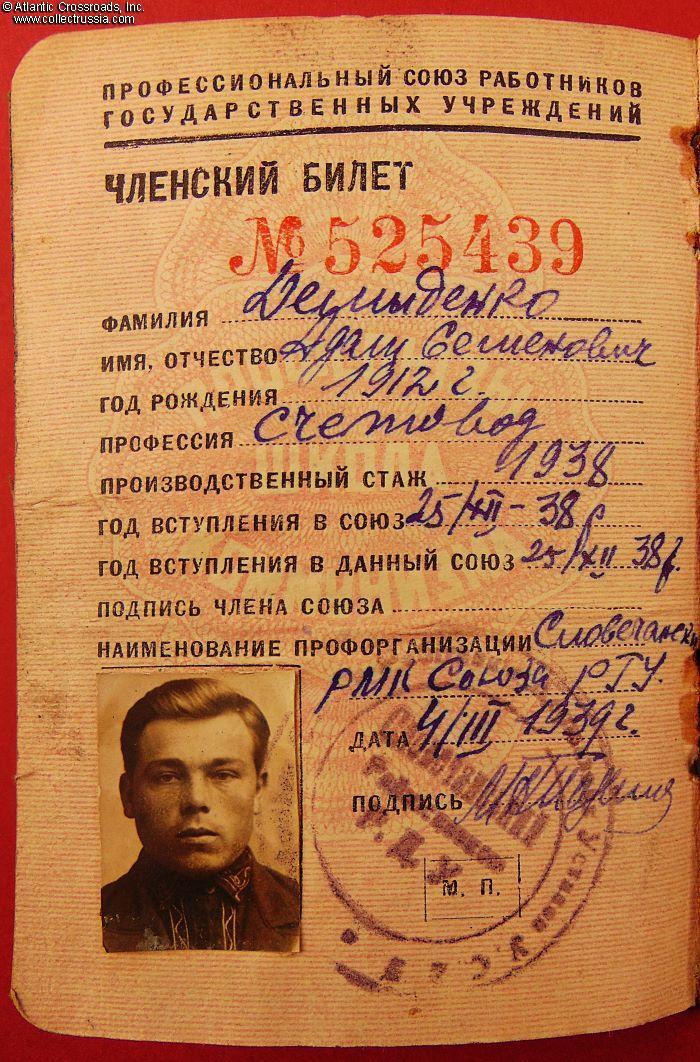 © Atlantic Crossroads, Inc.
www.collectrussia.com
ПРОФЕССИОНАЛЬНЫЙ СОЮЗ РАБОТНИКОВ
ГОСУДАРСТВЕННЫХ УЧРЕЖДЕНИЙ
ЧЛЕНСКИЙ БИЛЕТ
№ 525439
ФАМИЛИЯ Демиденко
ИМЯ, ОТЧЕСТВО Адам Семенович
ГОД РОЖДЕНИЯ 1912 г.
ПРОФЕССИЯ Счетовод
ПРОИЗВОДСТВЕННЫЙ СТАЖ 1938
ГОД ВСТУПЛЕНИЯ В СОЮЗ 25/XII-38 г
ГОД ВСТУПЛЕНИЯ В ДАННЫЙ СОЮЗ 25/XII 38 г.
ПОДПИСЬ ЧЛЕНА СОЮЗА
НАИМЕНОВАНИЕ ПРОФОРГАНИЗАЦИИ
РМК Союза РГУ.
ДАТА 4/III 1939 г.
ПОДПИСЬ
М. П.
ШКОЛА
КОММУНИЗМА